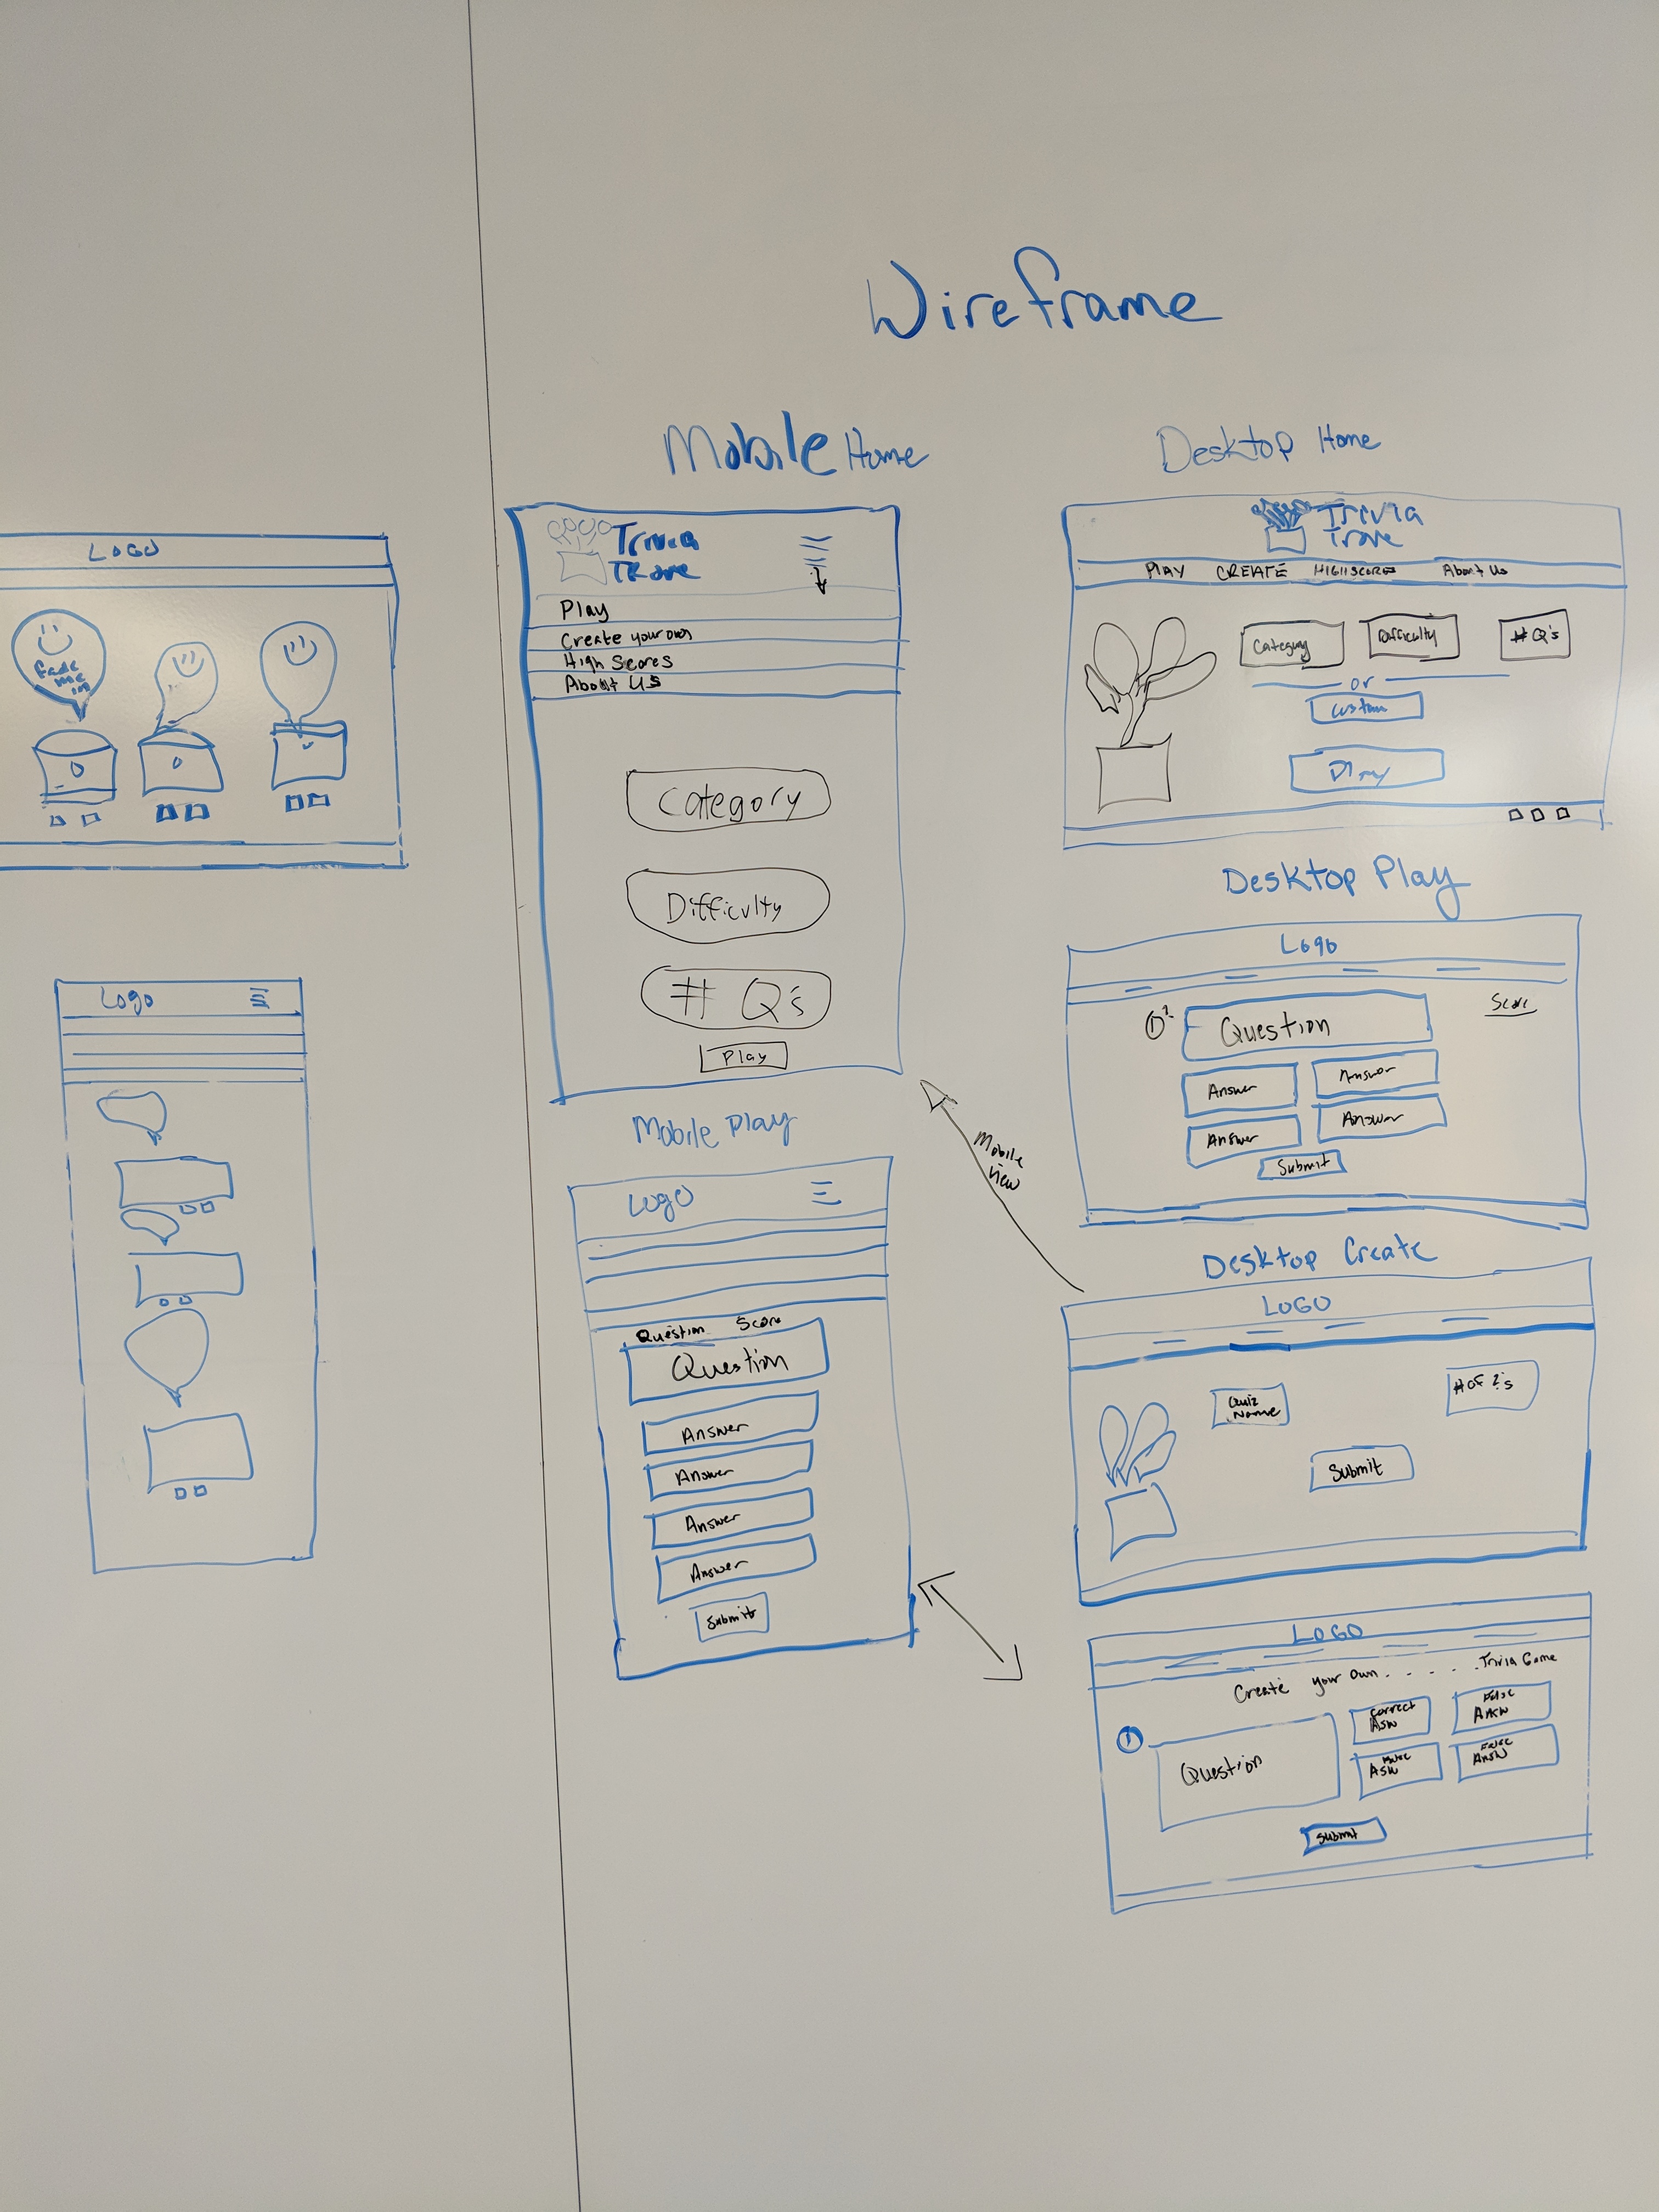 Wireframe
LOGO
fade
me
in
Logo
Mobile Home
Trivia
TRove
Play
Create your own
High Scores
About US
Category
Difficulty
# Q's
Play
Mobile Play
Logo
Question Score
Question
Answer
Answer
Answer
Answer
Submit
Mobile
View
Desktop Home
Trivia
Trove
PLAY CREATE HIGHSCORES About Us
Category Difficulty # Q's
or
Custom
Play
Desktop Play
Logo
Score
1 ?
Question
Answer Answer
Answer Answer
Submit
Desktop Create
LOGO
Quiz
Name
# OF ?'s
Submit
LOGO
Create your own . . . . . . Trivia Game
1
Question
Correct
Asw
False
Answ
Asw
False
Answ
Submit